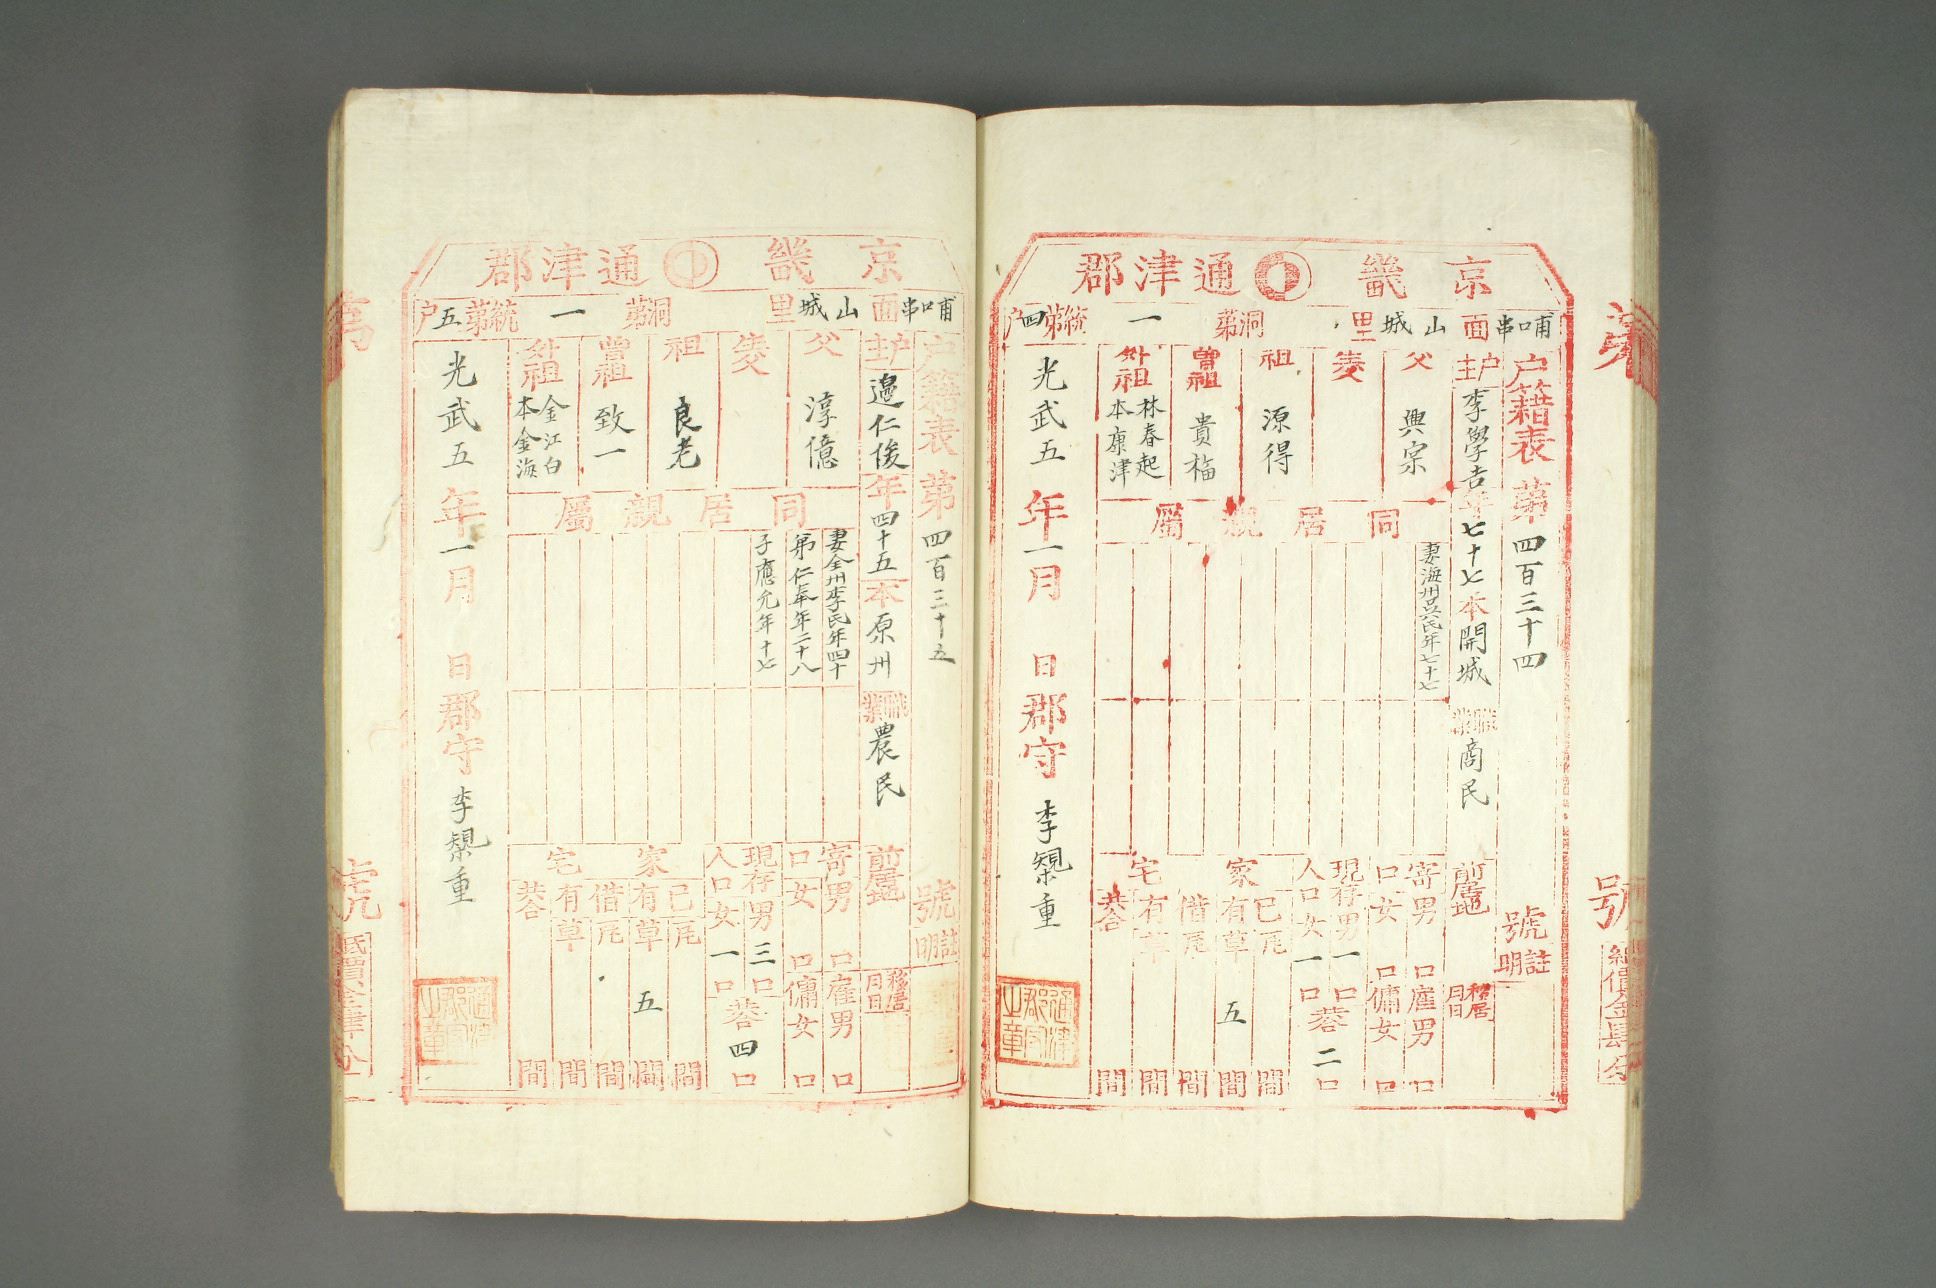 京畿通津郡
哺串面山城里洞第一統第四戶
戶籍表第四百三十四號
註明
戶主李學吉年七十七本開城職業商民前居地
移居月日
父興宗
生父
祖源得
曾祖貴福
外祖林春起本康津
同居親屬
妻海州吳氏年七十七
寄口男口女口
雇男口傭女口
現存人口男一口女一口共合二口
家宅
己有瓦間草五間
借有瓦間草間
共合間
光武五年一月日郡守李槼重
通津郡守之章
號
京畿通津郡
哺串面山城里洞第一統第五戶
戶籍表第四百三十五號
註明
戶主邉仁俊年四十五本原州職業農民前居地
移居月日
父淳億
生父
祖良老
曾祖致一
外祖金江白本金海
同居親屬
妻全州李氏年四十
弟仁奉年二十八
子應允年十七
寄口男口女口
雇男口傭女口
現存人口男三口女一口共合四口
家宅
己有瓦間草五間
借有瓦間草間
共合間
光武五年一月日郡守李槼重
通津郡守之章